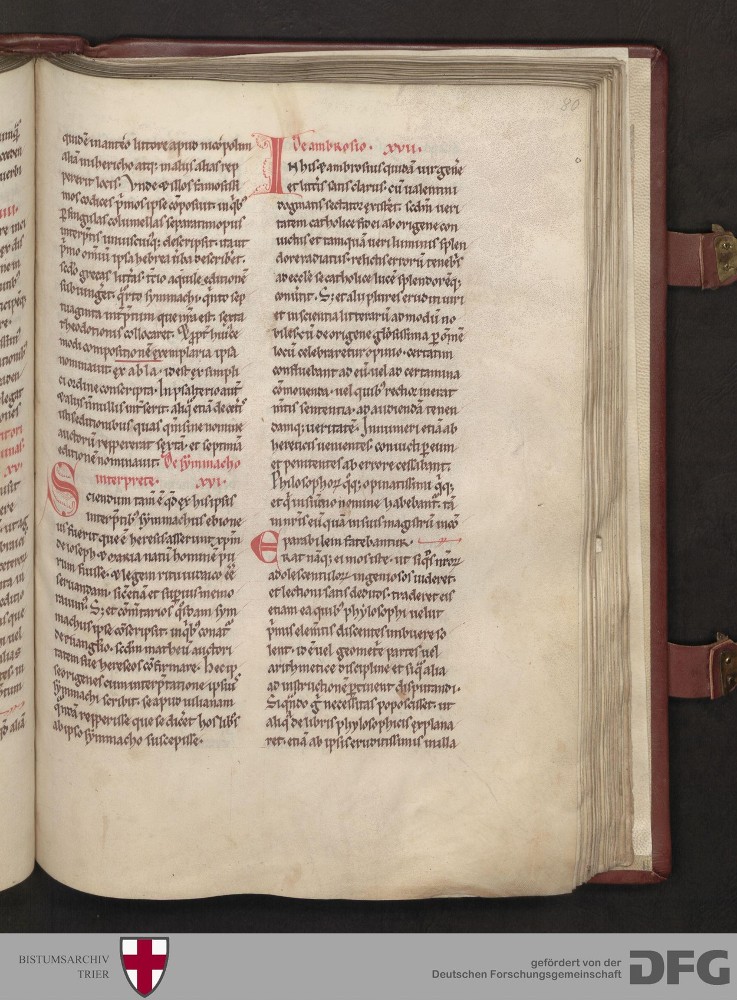 80
quidē in anteo littore apud nicopolim
aliā in hiericho atq; in aliis alias rep
pererit locis. Vnde & illos famosissi
mos codices p̄mos ipse cōposuit in q̄b;
p̱ singulas columellas separatim opus
interp̄tis uniuscuiusq; descripsit. ita ut
p̄mo omniū ipsa hebrea uerba describer&.
scd̄o grecas litt̄as. tercio aquile editionē
subiunger&. q̄rto symmachi. quinto sep
tuaginta interp̄tum que nr̄a est. sexta
theodotionis collocar&. & ꝓpt̄ huiusce
modi compositionē exemplaria ipsa
nominauit exapla. id est sex simpli
ci ordine conscripta. In psalterio aut̄
& aliis nonnullis inseruit aliq̄ etiā de ceteris
istis editionibus quas q̄m sine nomine
auctorū reppererat sextā. et septimā
editionē nominauit. De symmacho
interprete. xvi.
Sciendum tam̄ ē qd̄ ex his ipsis
interp̄tib; symmachus ebione
us fuerit. que ē heresis asserentiū xp̄m
de ioseph & maria natū hominē pu
rum fuisse. & legem ritu iudaico ēē
seruandam. sic etiā et superius memo
rauim̄. S; et com̄tarios q̄sdam sym
machus ipse conscripsit. in q̄b; conat̄
de euangl̄io. scd̄m matheū auctori
tatem sue hereseos cōfirmare. Hec ip
se origenes cum interp̄tatione ipsius
symmachi scribit. se apud iulianam
quandā repperisse que se dicer& hos libros
ab ipso symmacho suscepisse.
De ambrosio. xvii.
In his & ambrosius quidā uir gene
re et litt̄is satis clarus. cū ualentini
dogmatis sectator exister&. scd̄m ueri
tatem catholice fidei ab origene con
uictus et tamquā ueri luminis splen
dore radiatus. relictis erroris tenebris
ad ecclesie catholice lucē splendorēq;
conuertit̄. S; et alii plures eruditi uiri
et in scientia litterarū admodū no
biles cū de origene gl̄osissima p̱ om̄e
locū celebraretur opinio. certatim
confluebant ad eū uel ad certamina
cōmouenda. uel quib; rectior inerat
mentis sententia. ad audiendā tenen
damq; ueritatē. Innumeri etiā ab
hereticis uenientes. conuicti p̱ eum
et penitentes ab errore cessabant.
Philosophoꝝ q̄q; opinatissimi q̄q;
et q̄ in summo nomine habebant̄. tā
in nr̄is eū quā in suis magistrū incō
parabilem fatebantur.
Erat nāq; ei mos iste. ut siq̄s nr̄oꝝ
adolescentuloꝝ ingeniosos uider&.
et lectioni satis deditos. trader& eis
etiam ea quib; phylosophi uelut
p̄mis elem̄tis discentes imbuere so
lent. id ē uel geometrie partes uel
arithmetice discipline et siq̄ alia
ad instructionē ꝑtinent disputandi.
Siq̄ndo g̊ necessitas poposcisset. ut
aliq̄ de libris phylosophicis explana
ret. etiā ab ipsis eruditissimis in illa
BISTUMSARCHIV
TRIER
gefördert von der
Deutschen Forschungsgemeinschaft
DFG